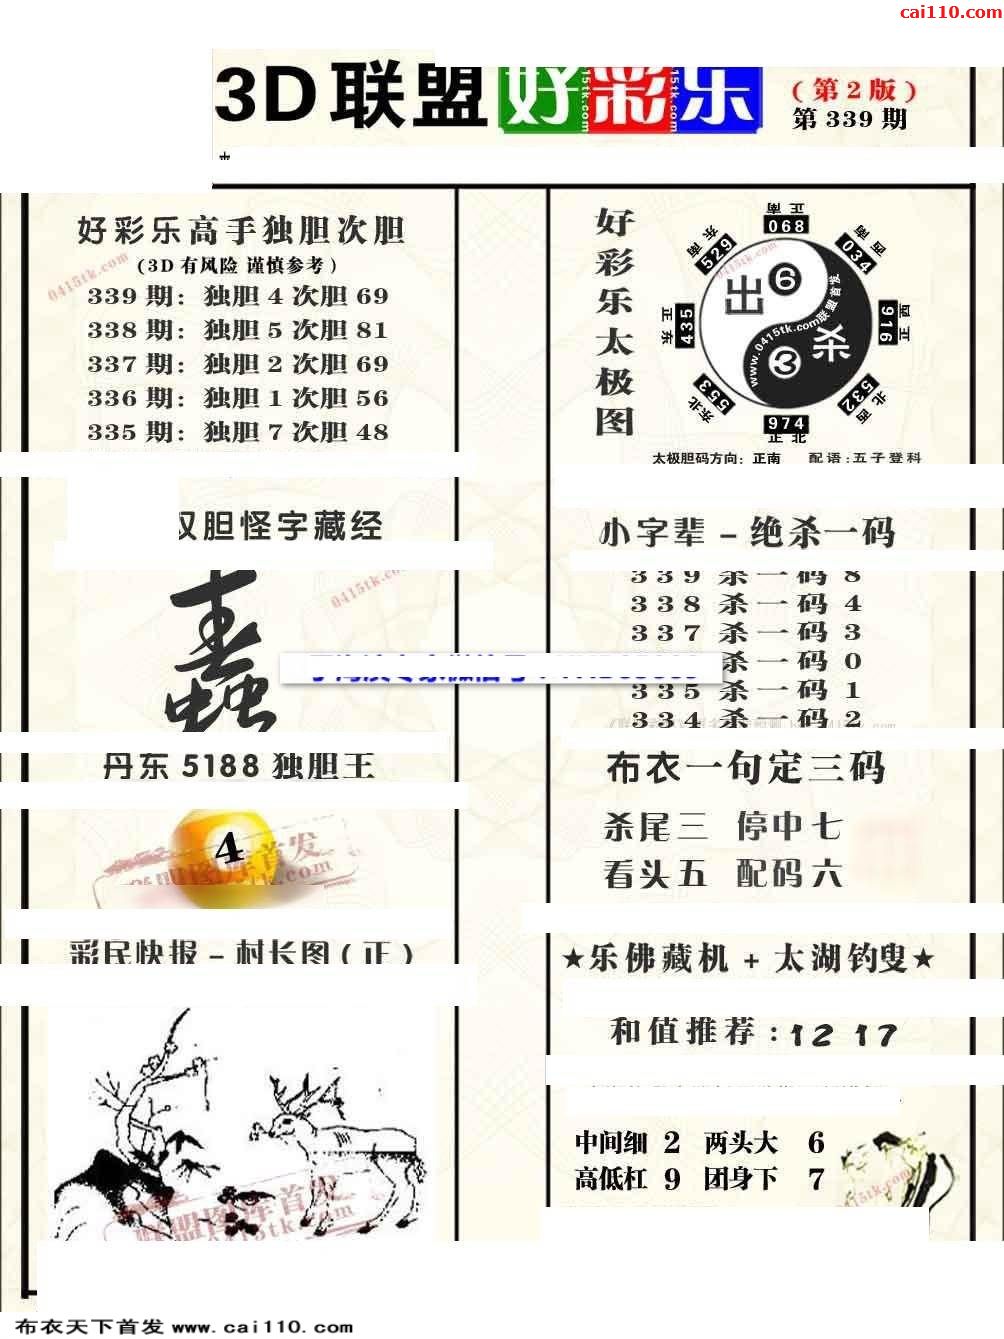 cai110.com
3D联盟好彩乐
(第2版)
第339期
好彩乐高手独胆次胆
(3D有风险 谨慎参考)
339期: 独胆4次胆69
338期: 独胆5次胆81
337期: 独胆2次胆69
336期: 独胆1次胆56
335期: 独胆7次胆48
好彩乐太极图
正南 068
西南 034
西正 916
北西 532
正北 974
东北 553
正东 435
东南 529
出 6
杀 3
www.0415tk.com联盟首发
太极胆码方向: 正南 配语:五子登科
双胆怪字藏经
0415tk.com
小字辈-绝杀一码
339 杀一码 8
338 杀一码 4
337 杀一码 3
杀一码 0
335 杀一码 1
334 杀一码 2
丹东5188独胆王
4
布衣一句定三码
杀尾三 停中七
看头五 配码六
彩民快报-村长图(正)
★乐佛藏机+太湖钓叟★
和值推荐:12 17
中间细 2 两头大 6
高低杠 9 团身下 7
联盟图库首发
0415tk.com
布衣天下首发 www.cai110.com